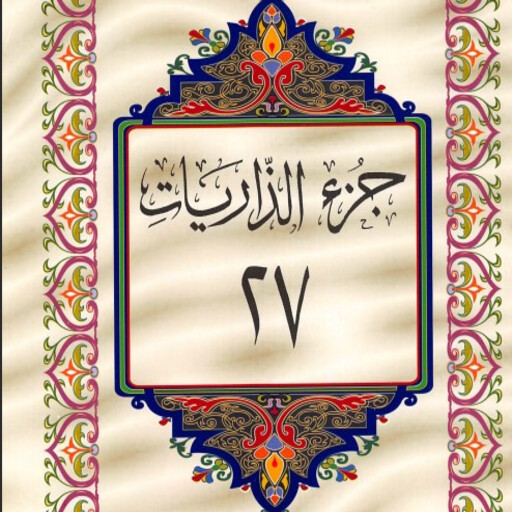 جُزء الذّاريَاتِ
٢٧